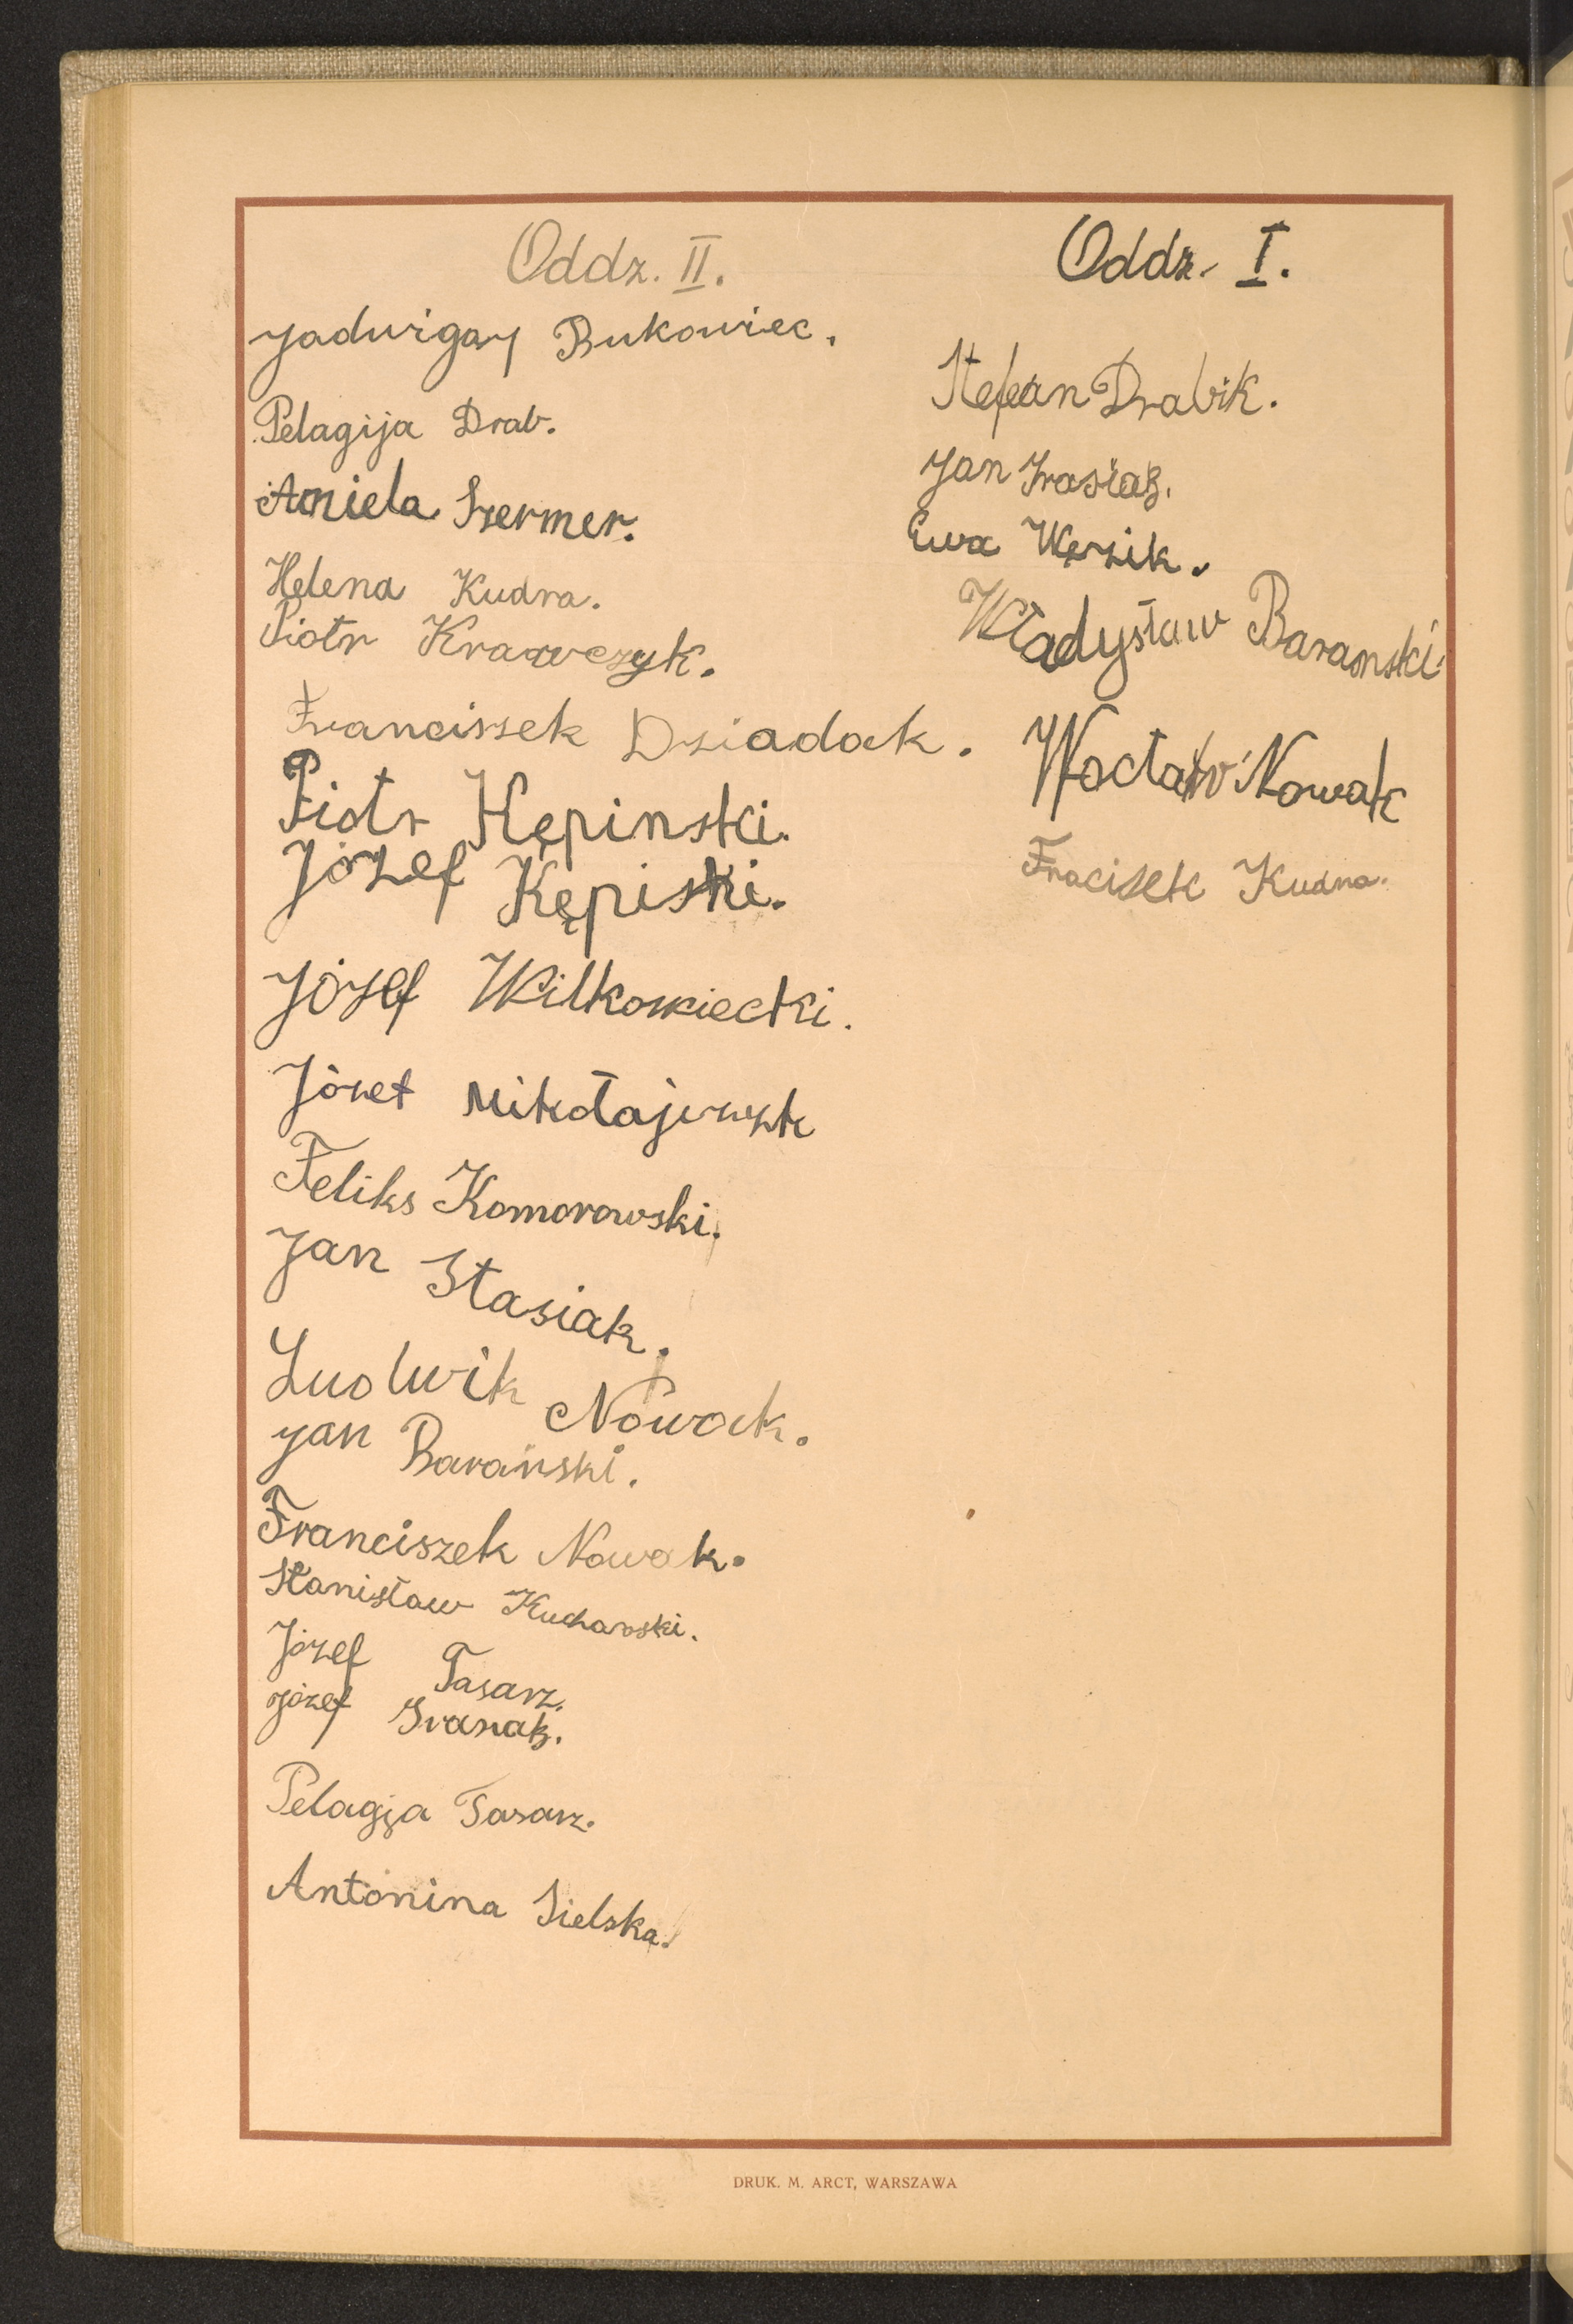 Oddz. II.
Jadwiga Bukowiec.
Pelagija Drab.
Aniela Szermer.
Helena Kudra.
Piotr Krawczyk.
Franciszek Dziadak.
Piotr Kępinski.
Józef Kępiski.
Józef Wilkowiecki.
Józef
Feliks Komorowski.
Jan Stasiak.
Ludwik Nowak.
Jan Barański.
Franciszek Nowak.
Stanisław Kucharski.
Józef Tasarz.
Józef
Pelagja Tasarz.
Antonina Sielska.
Oddz. I.
Stefan Drabik.
Jan
Ewa Węzik.
Władysław Baranski.
Wacław Nowak
Fracisek Kudra.
DRUK. M. ARCT, WARSZAWA